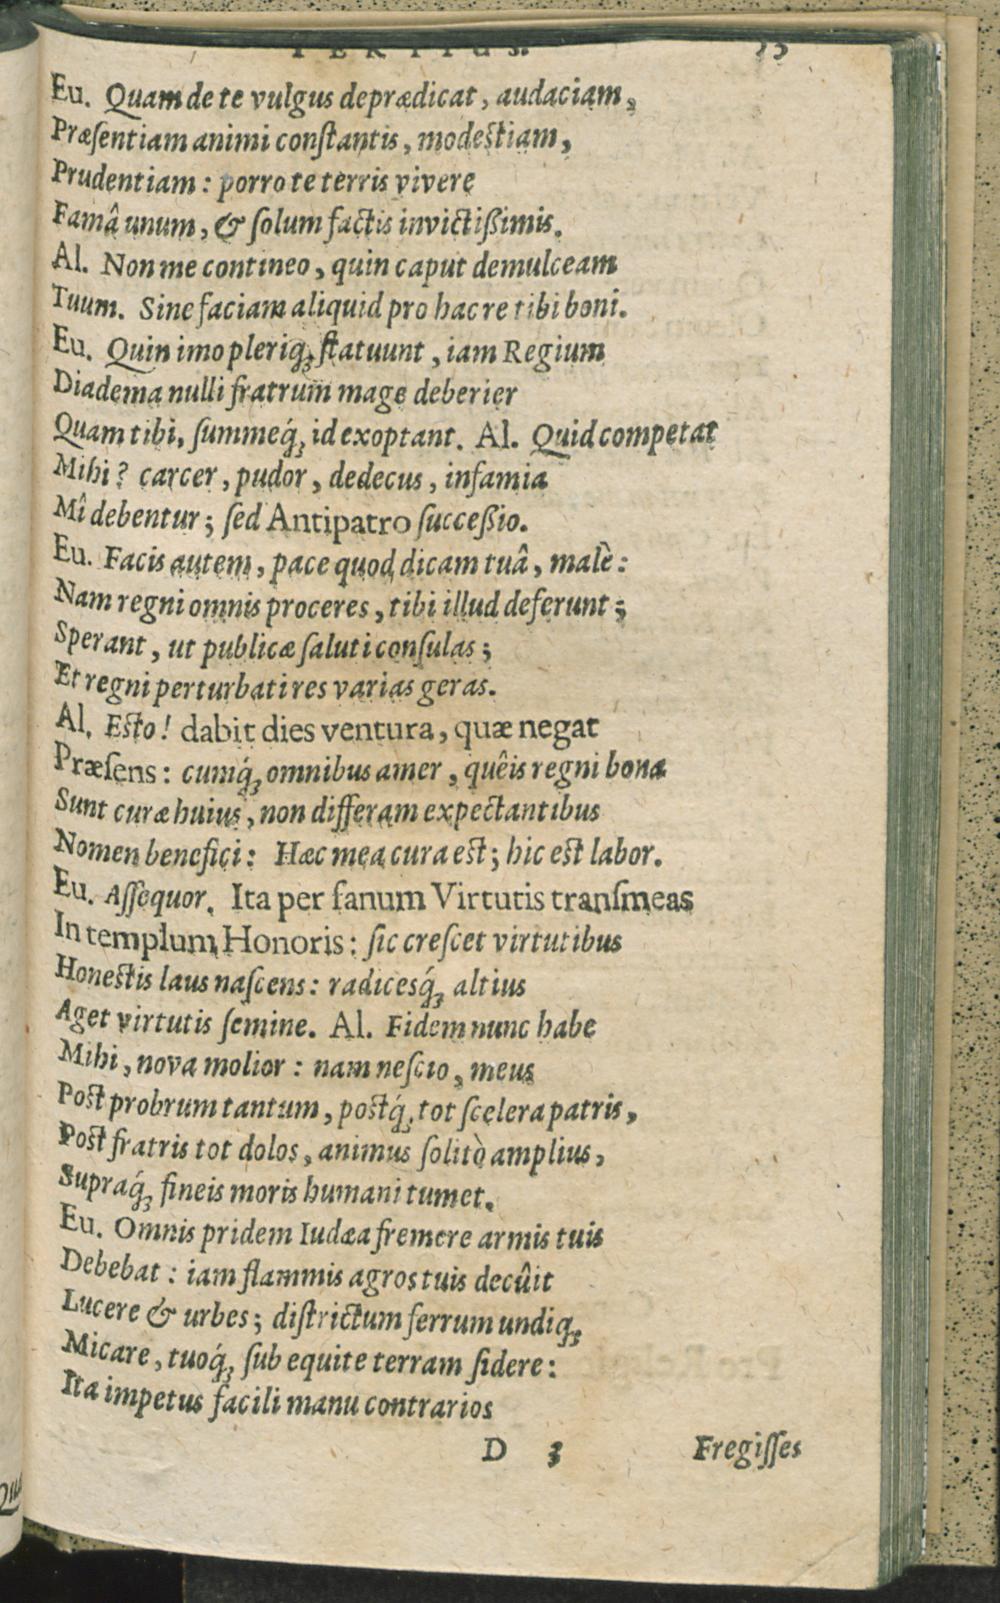 TERTIUS.
Eu. Quam de te vulgus deprædicat, audaciam,
Præſentiam animi conſtantis, modeſtiam,
Prudentiam: porro te terris vivere
Famâ unum, & ſolum factis invictißimis.
Al. Non me contineo, quin caput demulceam
Tuum. Sine faciam aliquid pro hac re tibi boni.
Eu. Quin imo pleriq́ꝫ ſtatuunt, iam Regium
Diadema nulli fratrum mage deberier
Quam tibi, ſummeq́ꝫ id exoptant. Al. Quid competat
Mihi? carcer, pudor, dedecus, infamia
Mî debentur; ſed Antipatro ſucceßio.
Eu. Facis autem, pace quod dicam tuâ, malè:
Nam regni omnis proceres, tibi illud deferunt;
Sperant, ut publicæ ſaluti conſulas;
Et regni perturbati res varias geras.
Al. Eſto! dabit dies ventura, quæ negat
Præſens: cumq́ꝫ omnibus amer, quêis regni bona
Sunt curæ huius, non differam expectantibus
Nomen benefici: Hæc mea cura eſt; hic eſt labor.
Eu. Aſſequor. Ita per fanum Virtutis tranſmeas
In templum Honoris: ſic creſcet virtutibus
Honeſtis laus naſcens: radicesq́ꝫ altius
Aget virtutis ſemine. Al. Fidem nunc habe
Mihi, nova molior: nam neſcio, meus
Poſt probrum tantum, poſtq́ꝫ tot ſcelera patris,
Poſt fratris tot dolos, animus ſolitò amplius,
Supraq́ꝫ fineis moris humani tumet.
Eu. Omnis pridem Iudæa fremere armis tuis
Debebat: iam flammis agros tuis decûit
Lucere & urbes; diſtrictum ferrum undiqꝫ
Micare, tuoq́ꝫ ſub equite terram ſidere:
Ita impetus facili manu contrarios
D 3 Fregiſſes